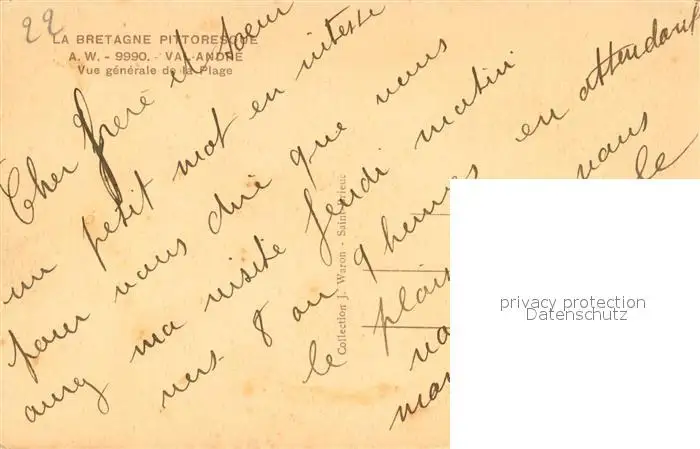 22
LA BRETAGNE PITTORESQUE
A. W. - 9990. - VAL-ANDRÉ
Vue générale de la Plage
Cher frère et soeur
un petit mot en vitesse
pour vous dire que vous
aurez ma visite jeudi matin
vers 8 ou 9 heures en attendant
le plais
vous
de
Collection J. Waron - Saint-Brieuc
privacy protection
Datenschutz